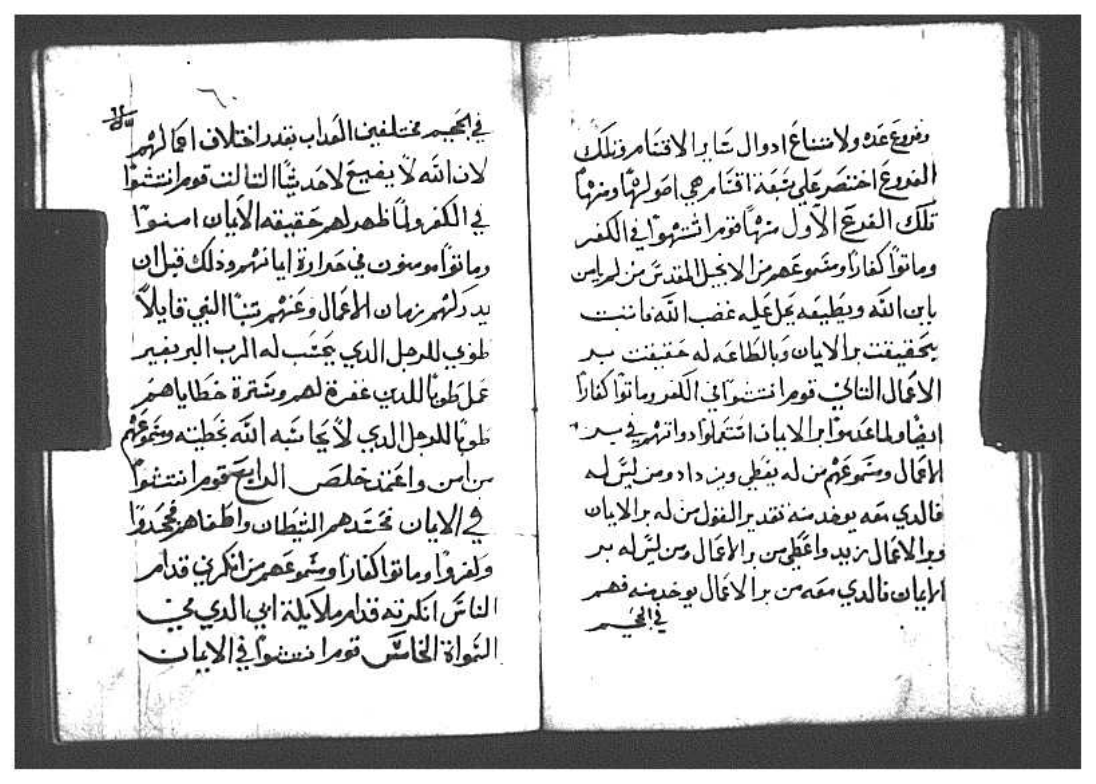 وفروع عده ولامتناع ادوال ساير الاقسام فتلك
الفروع اختصر علي تسعة اقسام هي اصولها ومنها
تلك الفرع الاول منها قوم انتشوا في الكفر
وماتوا كفارا ومسموعهم من الانجيل المقدس من لم يامن
بابن الله ويطيعه يحل عليه غضب الله فاثبت
بحقيقت بر الايمان وبالطاعه له حقيقت بر
الاعمال التاني قوم انتشوا في الكفر وماتوا كفارا
ايضا ولما عدموا بر الايمان استعملوا دواتهم في بر
الاعمال ومسموعهم من له يعطي ويزداد ومن ليس له
فالدي معه يوخد منه تقدير القول من له بر الايمان
وبر الاعمال زيد واعطي من بر الاعمال ومن ليس له بر
الايمان فالدي معه من بر الاعمال يوخد منه فهم
في الجحيم
٦٠
في الجحيم مختلفين العداب بقدر اختلاف افعالهم
لان الله لا يضيع لاحد شيا التالت قوم انتشوا
في الكفر ولما ظهر لهم حقيقه الايمان امنوا
وماتوا مومنون في حرارة ايمانهم ودلك قبل ان
يدركهم زمان الاعمال وعنهم تنبا النبي قايلا
طوبي للرجل الدي يحسب له الرب البر بغير
عمل طوبا للدين غفرة لهم وسترة خطاياهم
طوبا للرجل الدي لا يحاسبه الله بخطيته ومسموعهم
من امن واعتمد خلص الرابع قوم انتشوا
في الايمان فحسدهم الشيطان واطغاهم فجحدوا
وكفروا وماتوا كفارا ومسموعهم من انكرني قدام
الناس انكرته قدام ملايكة ابي الدي في
السموات الخامس قوم انتشوا في الايمان